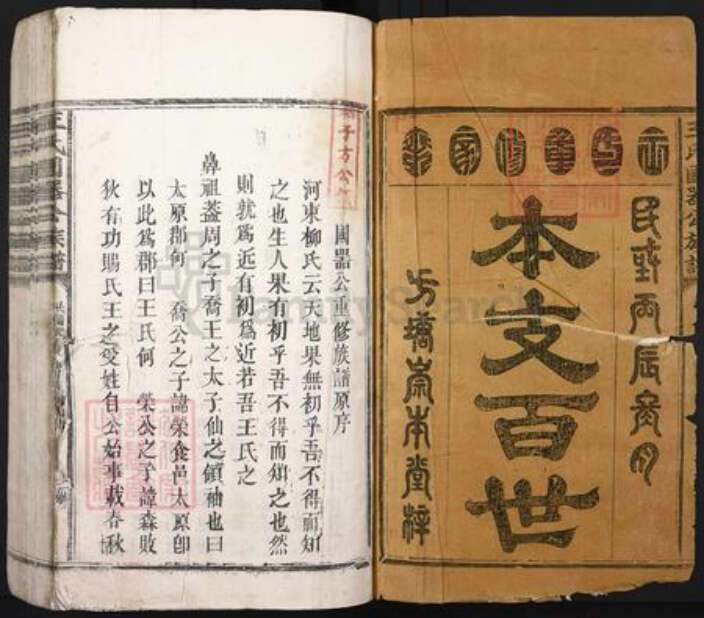 本支百世
民國丙辰
方橋崇本堂梓
王氏國器公族譜
國器公重修族譜原序
河東柳氏云天地果無初乎吾不得而知
之也生人果有初乎吾不得而知之也然
則孰為近有初為近若吾王氏之
鼻祖蓋周之子喬王之太子仙之領袖也曰
太原郡何 喬公之子諱榮食邑太原卽
以此爲郡曰王氏何 榮公之子諱森敗
狄有功賜氏王之受姓自公始事載春秋
王氏國器公族譜
FamilySearch